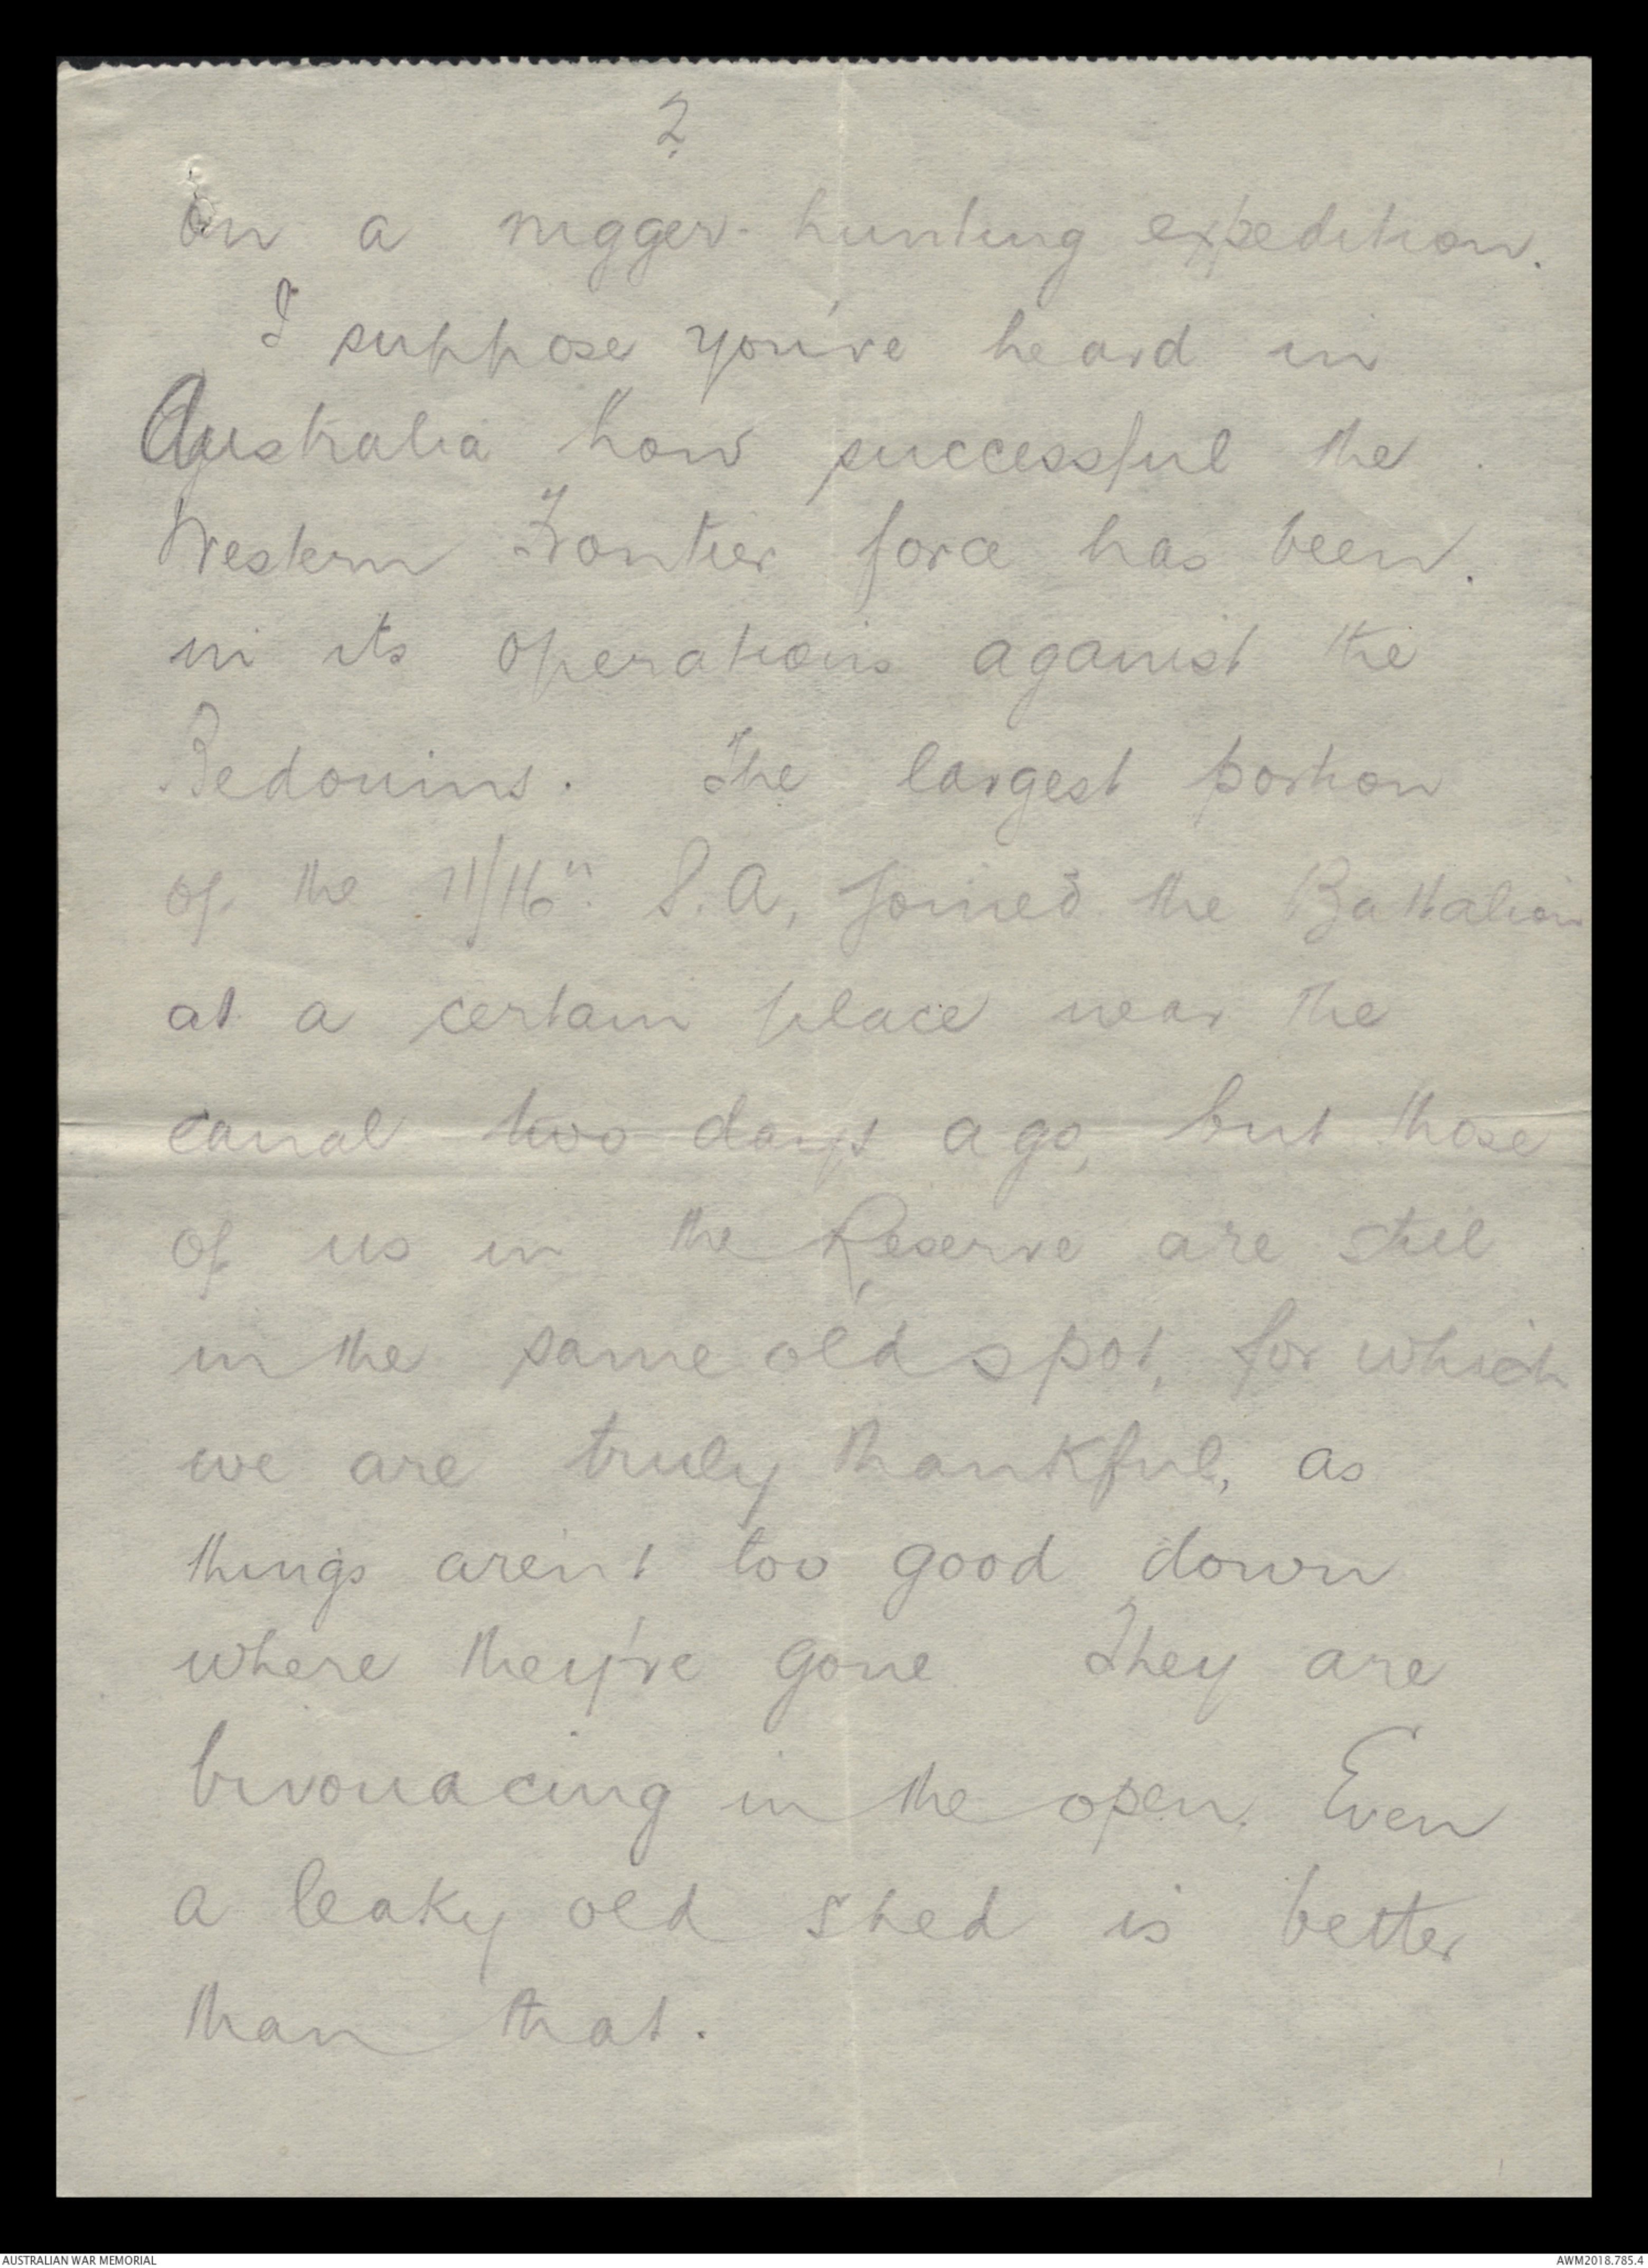 2
on a nigger-hunting expedition.
I suppose you've heard in
Australia how successful the
Western Frontier force has been.
in its operations against the
Bedouins. The largest portion
of the 11/16th S.A, joined the Battalion
at a certain place near the
canal two days ago, but those
of us in the Reserve are still
in the same old spot, for which
we are truly thankful, as
things aren't too good down
where they've gone They are
bivouacing in the open. Even
a leaky old shed is better
than that.
AUSTRALIAN WAR MEMORIAL
AWM2018.785.4